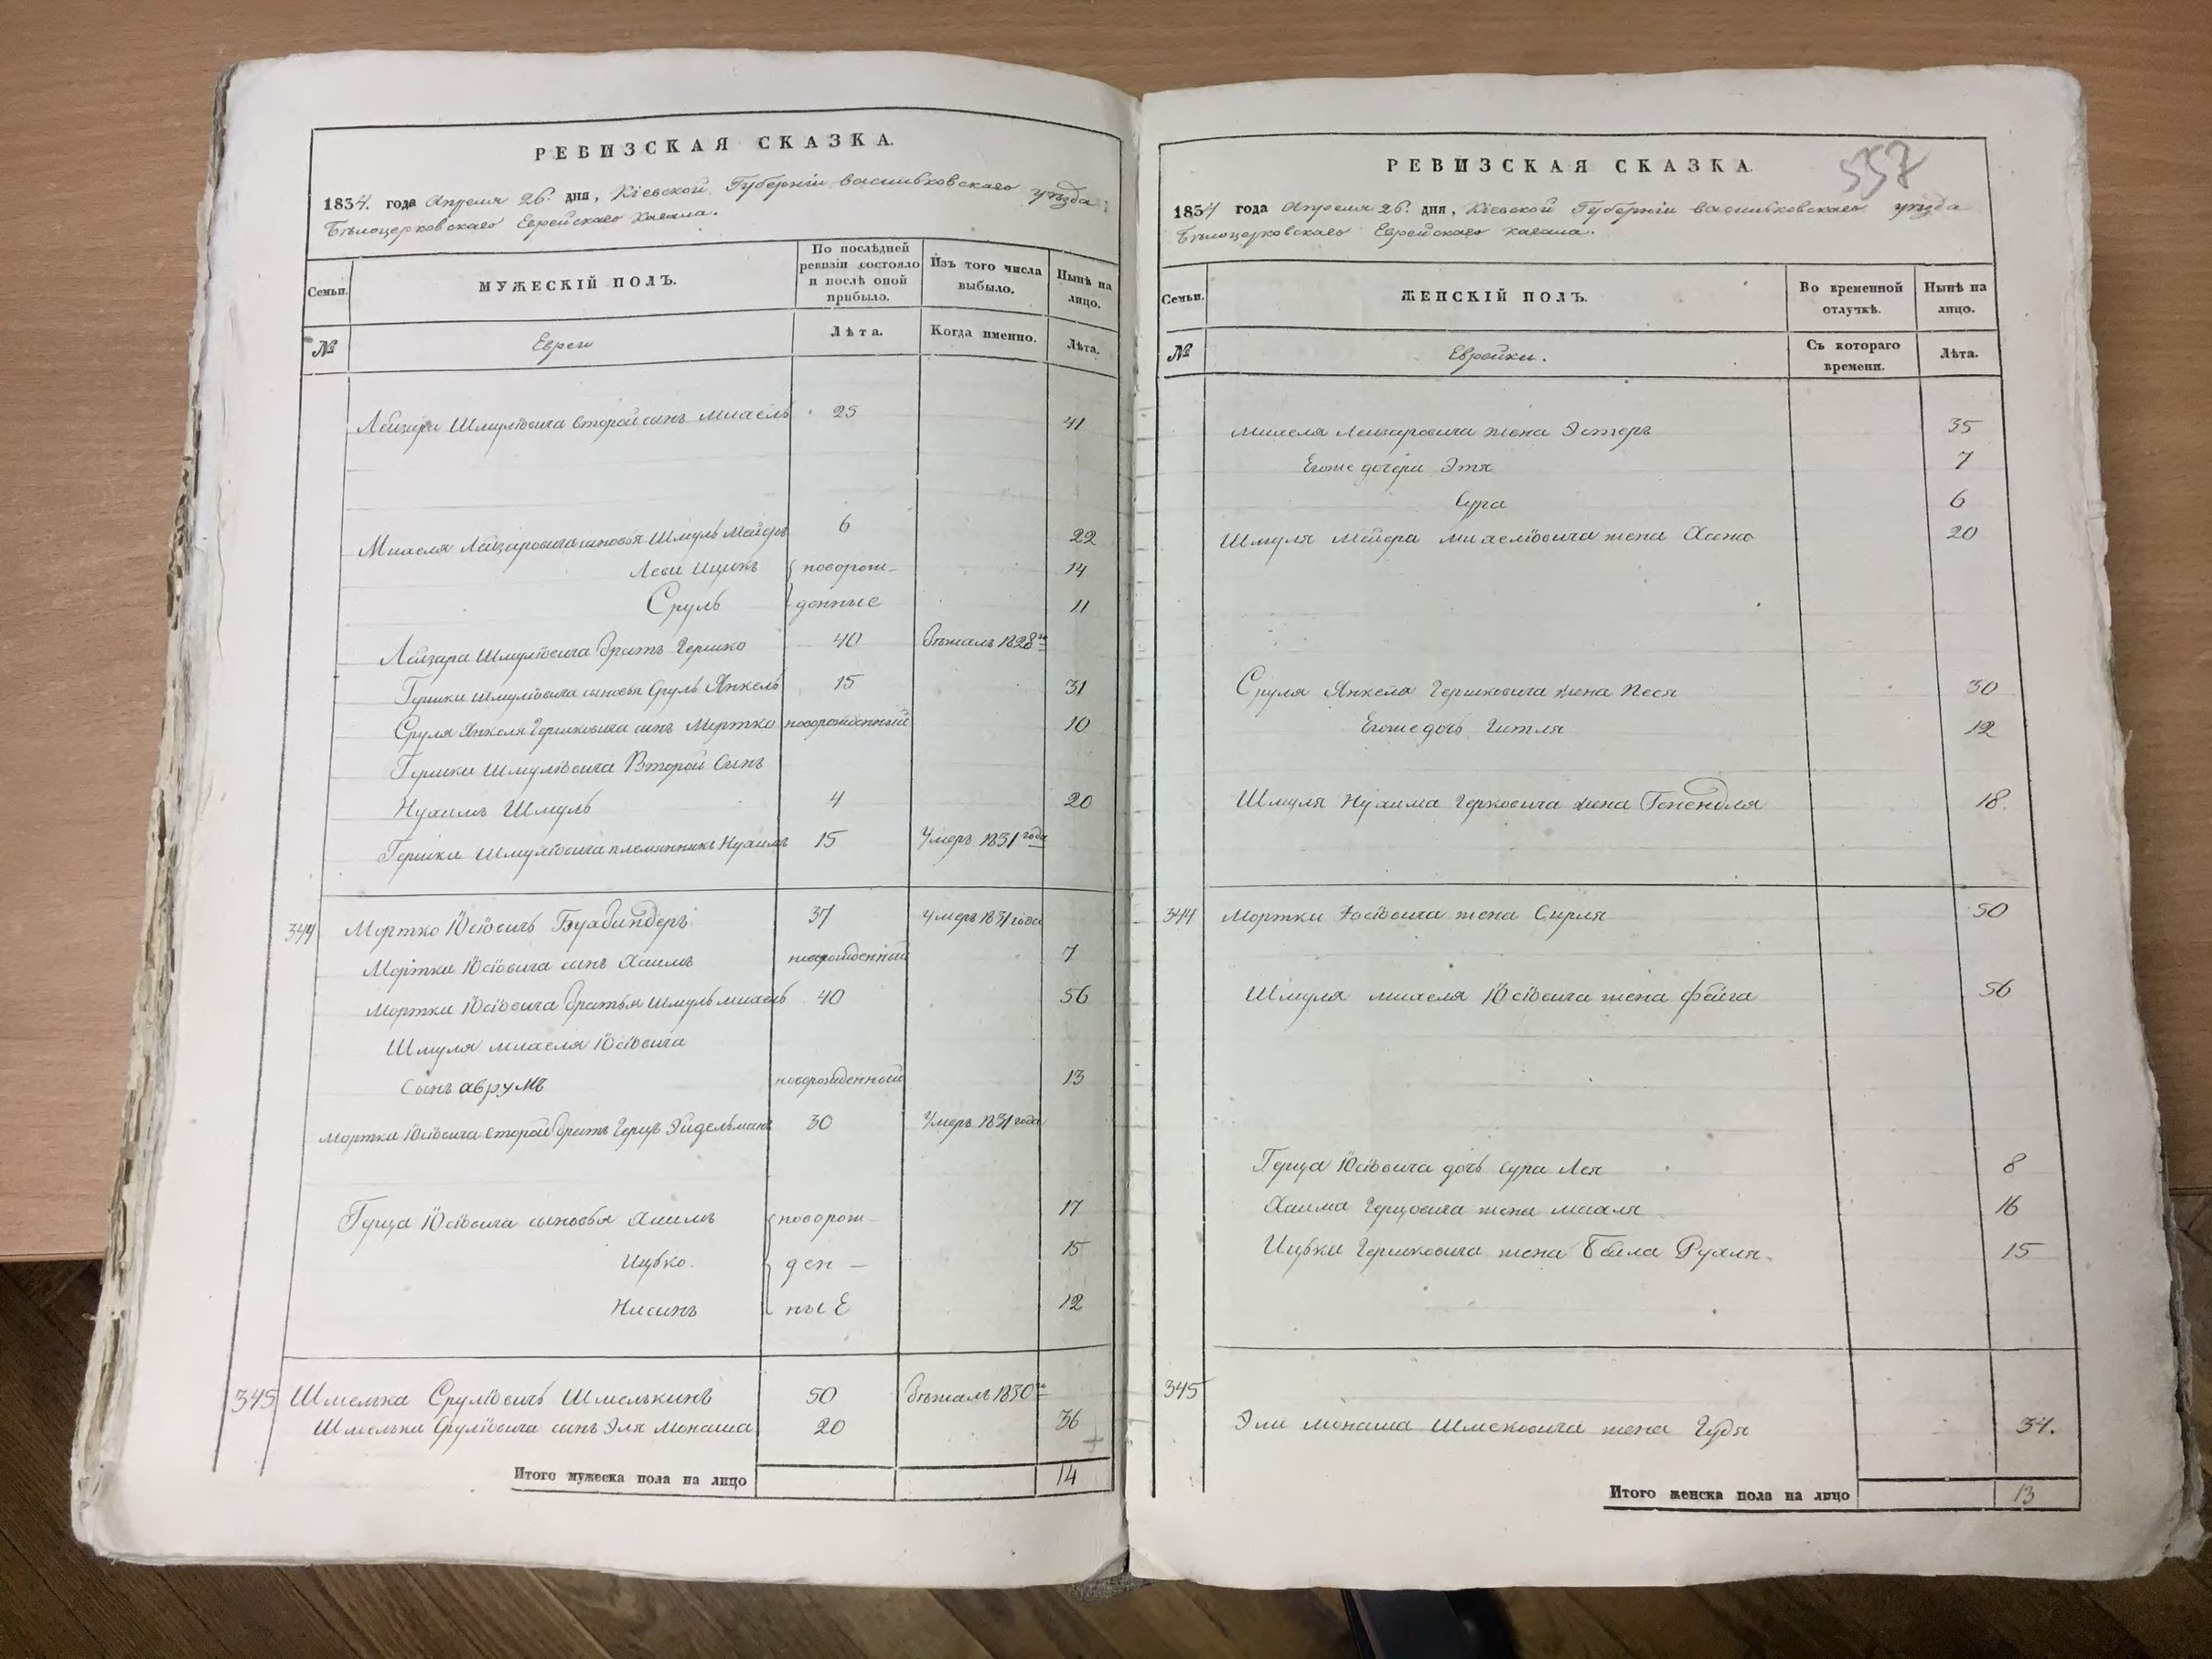 РЕВИЗСКАЯ СКАЗКА.
1834. года Апреля 26. дня, Кіевской Губерніи васильковскаго уѣзда
Бѣлоцерковскаго Еврейскаго кагала.
Семьи.
МУЖЕСКІЙ ПОЛЪ.
По послѣдней ревизіи состояло и послѣ оной прибыло.
Изъ того числа выбыло.
Нынѣ на лицо.
№
Евреи
Лѣта.
Когда именно.
Лѣта.
Лейзера Шмулiовича второй сынъ михель 25 41
Михеля Лейзеровича сыновья Шмуль Мейеръ 6 22
Леви Ицикъ новорож- 14
Сруль денные 11
Лейзера Шмулiовича братъ Гершко 40 бѣжалъ 1828го
Гершки Шмулiовича сыновья Сруль Янкель 15 31
Сруля Янкеля Гершковича сынъ Мортко новорожденный 10
Гершки Шмулiовича Второй Сынъ
Нухимъ Шмуль 4 20
Гершки Шмулiовича племянникъ Нухимъ 15 Умеръ 1831 года
344 Мортко Iосiовичъ Бухбиндеръ 37 Умеръ 1831 года
Мортки Iосiовича сынъ Хаимъ новорожденный 7
Мортки Iосiовича братья Шмуль михель 40 56
Шмуля михеля Iосiовича
Сынъ аврумъ новорожденный 13
Мортки Iосiовича второй братъ Герцъ Эйдельманъ 30 Умеръ 1831 года
Герца Iосiовича сыновья Хаимъ новорож- 17
Ицько. ден- 15
Нисинъ ные 12
345 Шмелька Срулiовичъ Шмелькинъ 50 бѣжалъ 1830го
Шмельки Срулiовича сынъ Эля Монаша 20 36
Итого мужеска пола на лицо 14
557
РЕВИЗСКАЯ СКАЗКА.
1834 года Апреля 26. дня, Кіевской Губерніи васильковскаго уѣзда
Бѣлоцерковскаго Еврейскаго кагала.
Семьи.
ЖЕНСКІЙ ПОЛЪ.
Во временной отлучкѣ.
Нынѣ на лицо.
№
Еврейки.
Съ котораго времени.
Лѣта.
михеля Лейзеровича жена Эстеръ 35
Егоже дочери Этя 7
Сура 6
Шмуля Мейера михелiовича жена Хана 20
Сруля Янкеля Гершковича жена Песя 30
Егоже дочь Гитля 12
Шмуля Нухима Герковича жена Генендля 18.
344 Мортки Iосiовича жена Сирля 50
Шмуля михеля Iосiовича жена фейга 56
Герца Iосiовича дочь сура Лея 8
Хаима Герцовича жена михля 16
Ицьки Гершковича жена Бейла Рухля. 15
345
Эли монаша Шмековича жена Гудя 34.
Итого женска пола на лицо 13